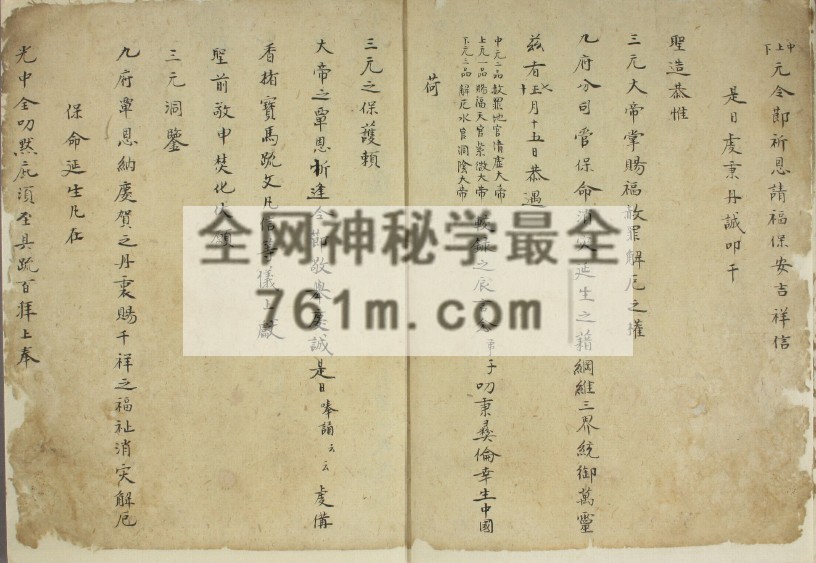 中上下元令節祈恩請福保安吉祥信
是日虔秉丹誠叩干
聖造恭惟
三元大帝掌賜福赦罪解厄之權
九府分司管保命消災延生之籍綱維三界統御萬靈
茲有正七十月十五日恭遇
中元二品赦罪地官清虛大帝
上元一品賜福天官紫微大帝
下元三品解厄水官洞陰大帝
之辰 子叨秉彝倫幸生中國
荷
三元之保護賴
大帝之覃恩欣逢令節敬興虔誠是日奉誦云云虔備
香楮寶馬疏文凡儀上獻
聖前敬申焚化伏願
三元洞鑒
九府覃恩納慶賀之丹衷賜千祥之福祉消災解厄
保命延生凡在
光中全叨默庇須至具疏百拜上奉
全网神秘学最全
761m.com